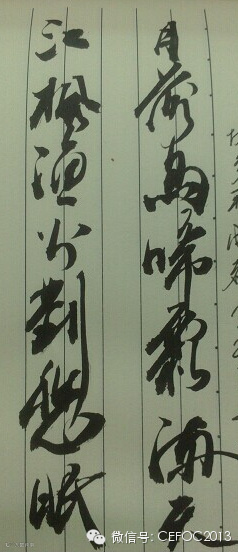 月落烏啼霜滿天
江楓漁火對愁眠
微信号: CEFOC2013